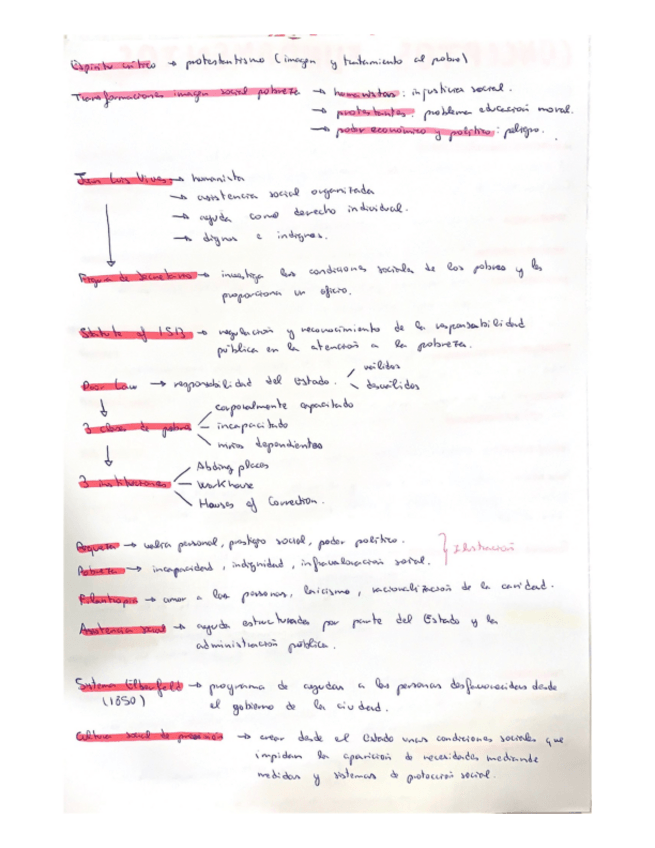 Espíritu crítico → protestantismo (imagen y tratamiento al pobre)
Transformaciones imagen social pobreza → humanistas: injusticia social.
→ protestantes: problema educación moral.
→ poder económico y político: peligro.
Juan Luis Vives → humanista
→ asistencia social organizada
→ ayuda como derecho individual.
→ dignos e indignos.
Figura de secretario → investiga las condiciones sociales de los pobres y les
proporciona un oficio.
Statute of 1531 → regulación y reconocimiento de la responsabilidad
pública en la atención a la pobreza.
Poor Law → responsabilidad del Estado. válidos
desválidos
3 clases de pobres corporalmente capacitado
incapacitado
niños dependientes
3 instituciones Abding places
Workhouse
Houses of Correction.
Riqueza → valía personal, prestigio social, poder político.
Pobreza → incapacidad, indignidad, infravaloración social. } Ilustración
Filantropía → amor a las personas, laicismo, racionalización de la caridad.
Asistencia social → ayuda estructurada por parte del Estado y la
administración pública.
Sistema Elberfeld → programa de ayudas a las personas desfavorecidas desde
(1850) el gobierno de la ciudad.
Cultura social de prevención → crear desde el Estado unas condiciones sociales que
impidan la aparición de necesidades mediante
medidas y sistemas de protección social.